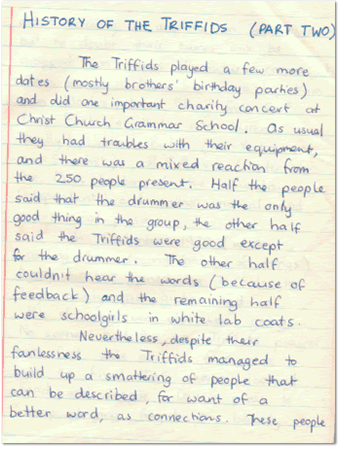 HISTORY OF THE TRIFFIDS (PART TWO)
The Triffids played a few more
dates (mostly brothers' birthday parties)
and did one important charity concert at
Christ Church Grammar School. As usual
they had troubles with their equipment,
and there was a mixed reaction from
the 250 people present. Half the people
said that the drummer was the only
good thing in the group, the other half
said the Triffids were good except
for the drummer. The other half
couldn't hear the words (because of
feedback) and the remaining half
were schoolgirls in white lab coats.
Nevertheless, despite their
fanlessness the Triffids managed to
build up a smattering of people that
can be described, for want of a
better word, as connections. These people